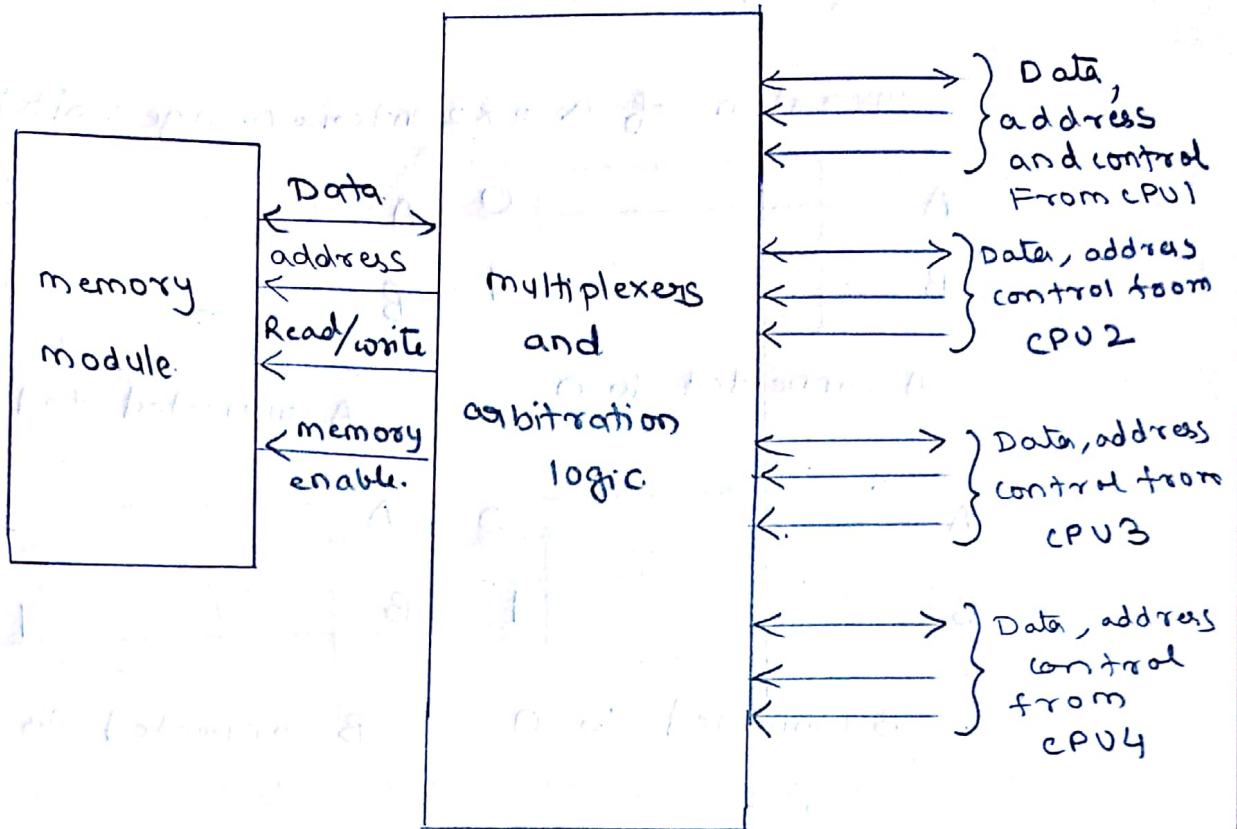 memory
module.
Data
address
Read/write
memory
enable.
multiplexers
and
arbitration
logic.
Data,
address
and control
From CPU1
Data, address
control from
CPU2
Data, address
control from
CPU3
Data, address
control
from
CPU4